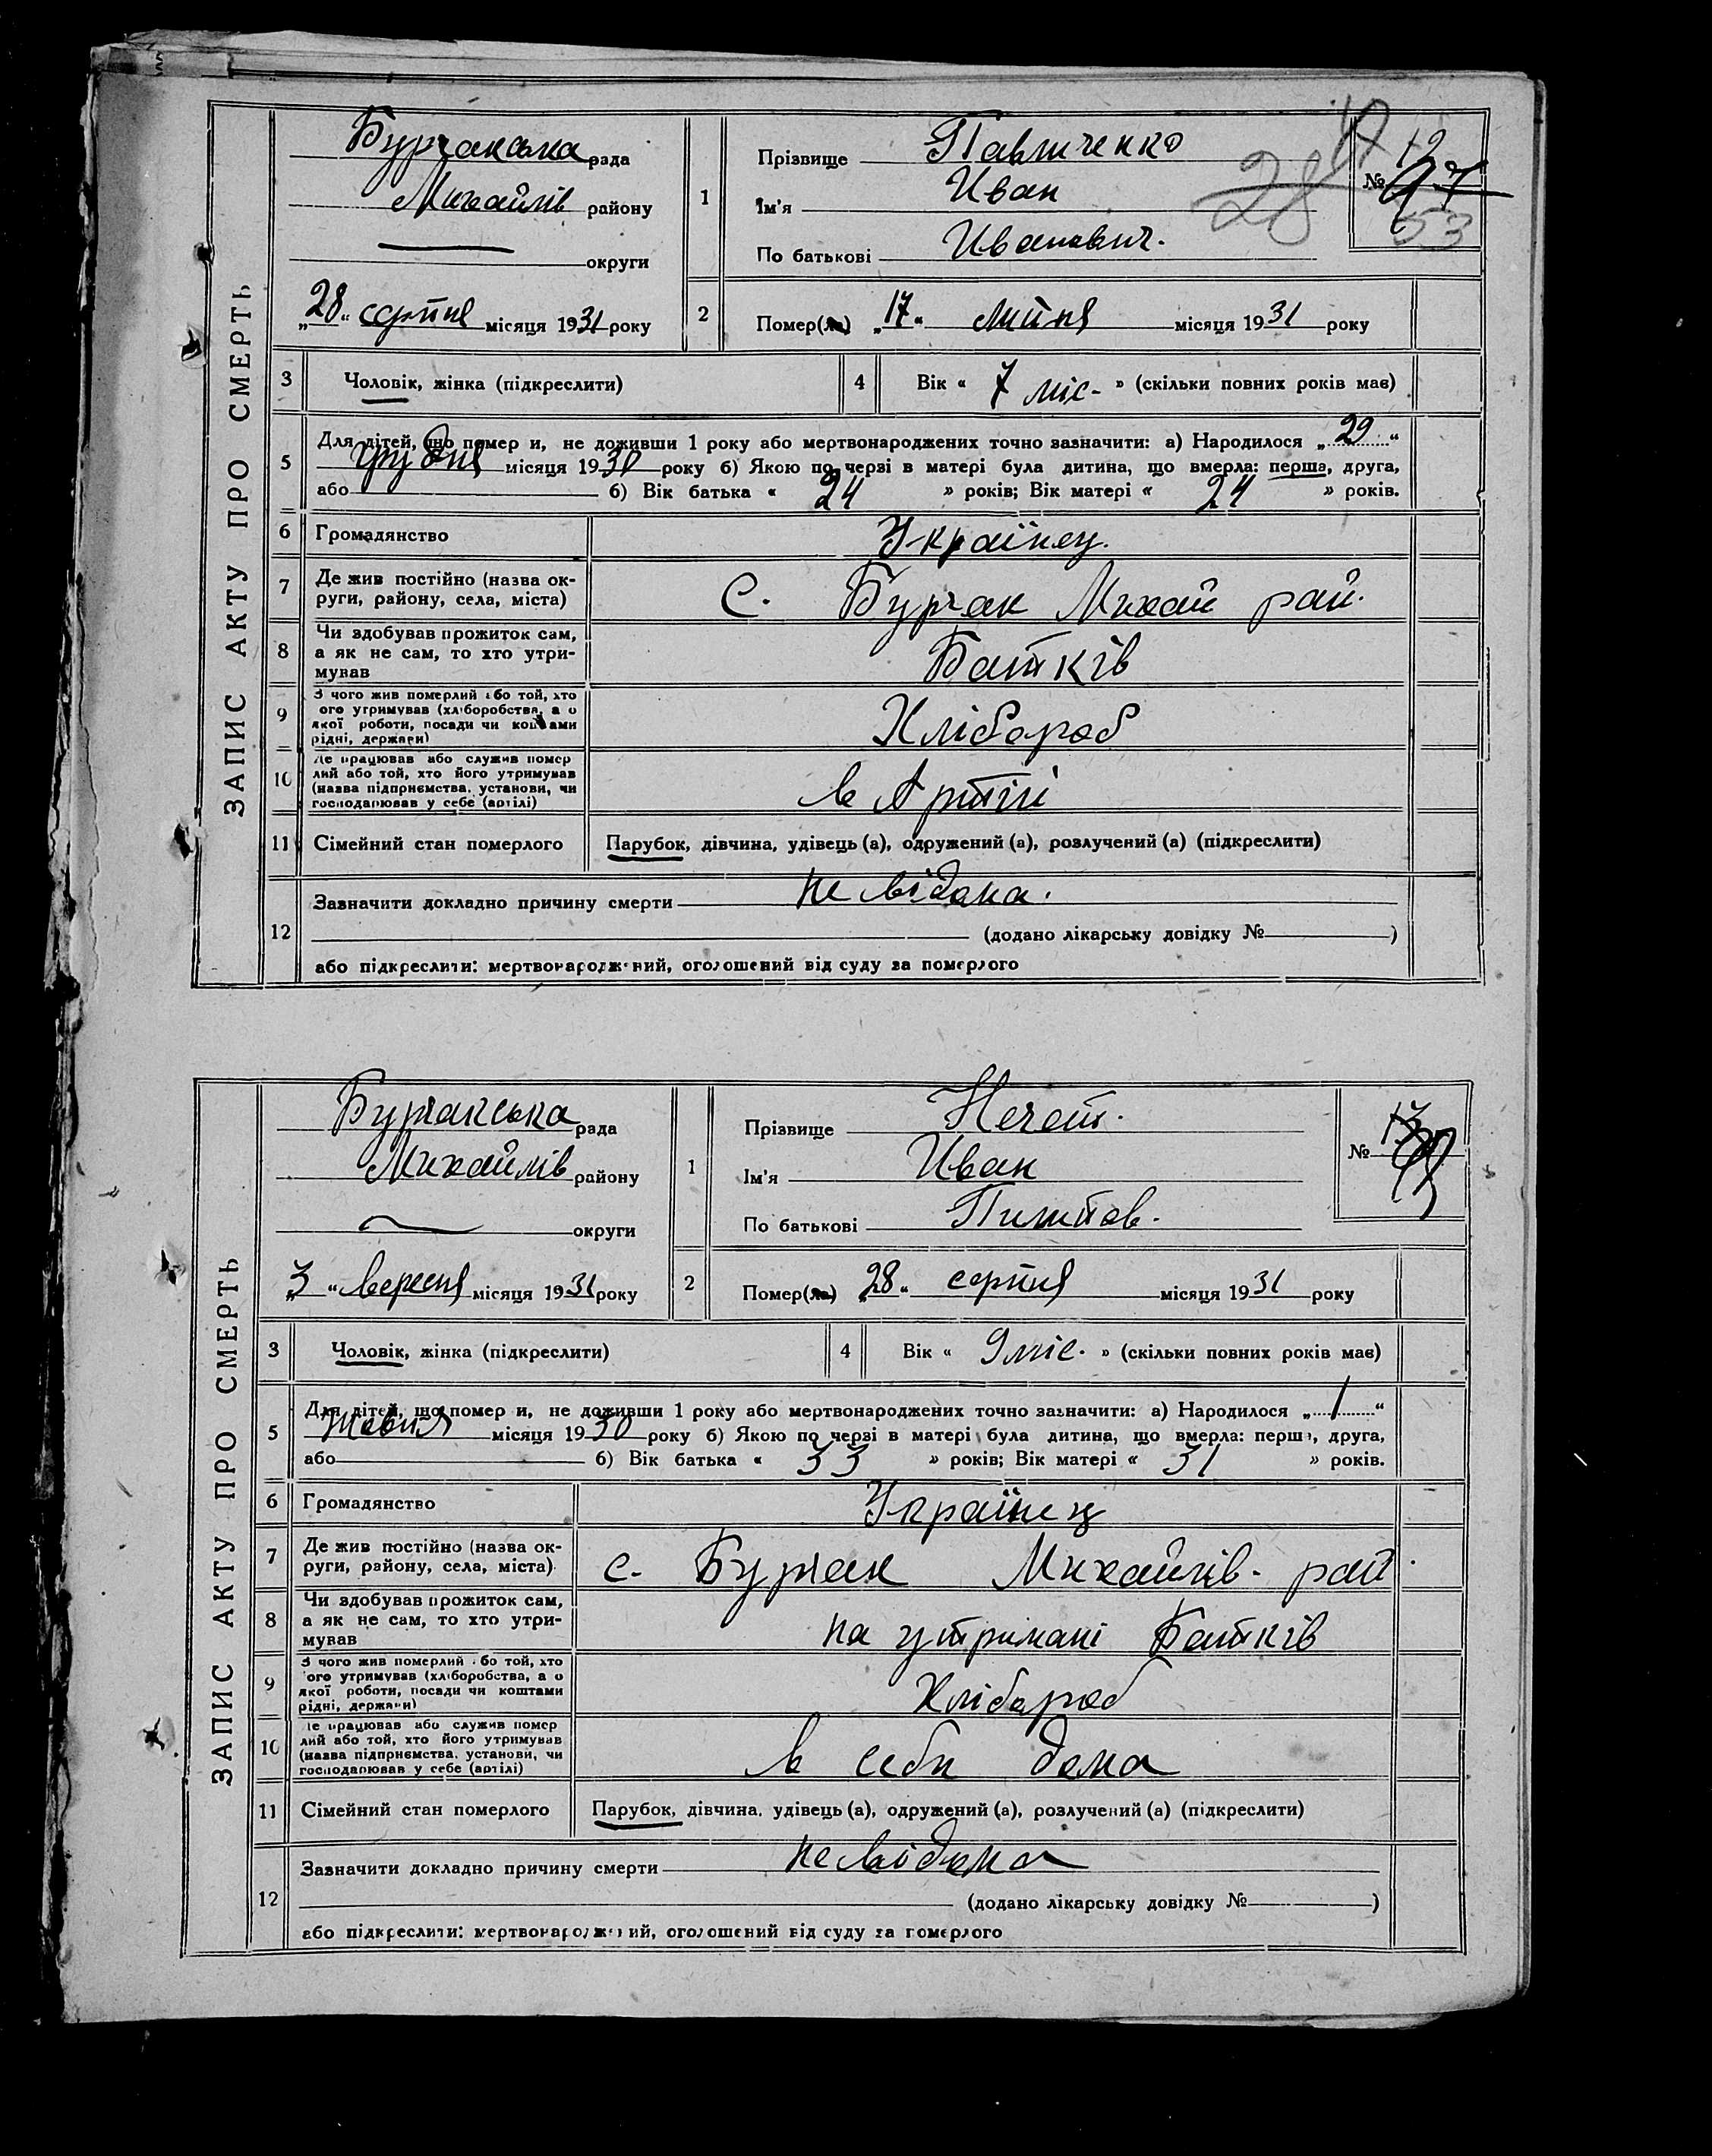 ЗАПИС АКТУ ПРО СМЕРТЬ
Бурчакська рада
Михайлів району
округи
„28“ серпня місяця 1931 року
1
Прізвище Павличенко
Ім'я Иван
По батькові Иванович.
28
№ 12
53
2
Помер(ла) „17“ липня місяця 1931 року
3 Чоловік, жінка (підкреслити)
4 Вік « 7 міс. » (скільки повних років має)
5 Для дітей, що помер и, не доживши 1 року або мертвонароджених точно зазначити: а) Народилося „29“
грудня місяця 1930 року б) Якою по черзі в матері була дитина, що вмерла: перша, друга,
або б) Вік батька « 24 » років; Вік матері « 24 » років.
6 Громадянство Українец.
7 Де жив постійно (назва ок-
руги, району, села, міста)
С. Бурчак Михай рай.
8 Чи здобував прожиток сам,
а як не сам, то хто утри-
мував
Батків
9 З чого жив померлий або той, хто
ого утримував (хліборобства, а о
якої роботи, посади чи коштами
рідні, держави)
Хлібороб
10 Де працював або служив помер
лий або той, хто його утримував
(назва підприємства, установи, чи
господарював у себе (артілі)
в Артілі
11 Сімейний стан померлого Парубок, дівчина, удівець (а), одружений (а), розлучений (а) (підкреслити)
12 Зазначити докладно причину смерти не відома.
(додано лікарську довідку № )
або підкреслити: мертвонароджений, оголошений від суду за померлого
ЗАПИС АКТУ ПРО СМЕРТЬ
Бурчакська рада
Михайлів району
округи
„3“ вересня місяця 1931 року
1
Прізвище
Ім'я Иван
По батькові
№ 13
2
Помер(ла) „28“ серпня місяця 1931 року
3 Чоловік, жінка (підкреслити)
4 Вік « 9 міс. » (скільки повних років має)
5 Для дітей, що помер и, не доживши 1 року або мертвонароджених точно зазначити: а) Народилося „1“
Жовтня місяця 1930 року б) Якою по черзі в матері була дитина, що вмерла: перша, друга,
або б) Вік батька « 33 » років; Вік матері « 31 » років.
6 Громадянство Українец
7 Де жив постійно (назва ок-
руги, району, села, міста)
с. Бурчак Михайлів. рай.
8 Чи здобував прожиток сам,
а як не сам, то хто утри-
мував
на утримані Батків
9 З чого жив померлий або той, хто
ого утримував (хліборобства, а о
якої роботи, посади чи коштами
рідні, держави)
Хлібороб
10 Де працював або служив помер
лий або той, хто його утримував
(назва підприємства, установи, чи
господарював у себе (артілі)
в себи дома
11 Сімейний стан померлого Парубок, дівчина, удівець (а), одружений (а), розлучений (а) (підкреслити)
12 Зазначити докладно причину смерти невідома
(додано лікарську довідку № )
або підкреслити: мертвонароджений, оголошений від суду за померлого